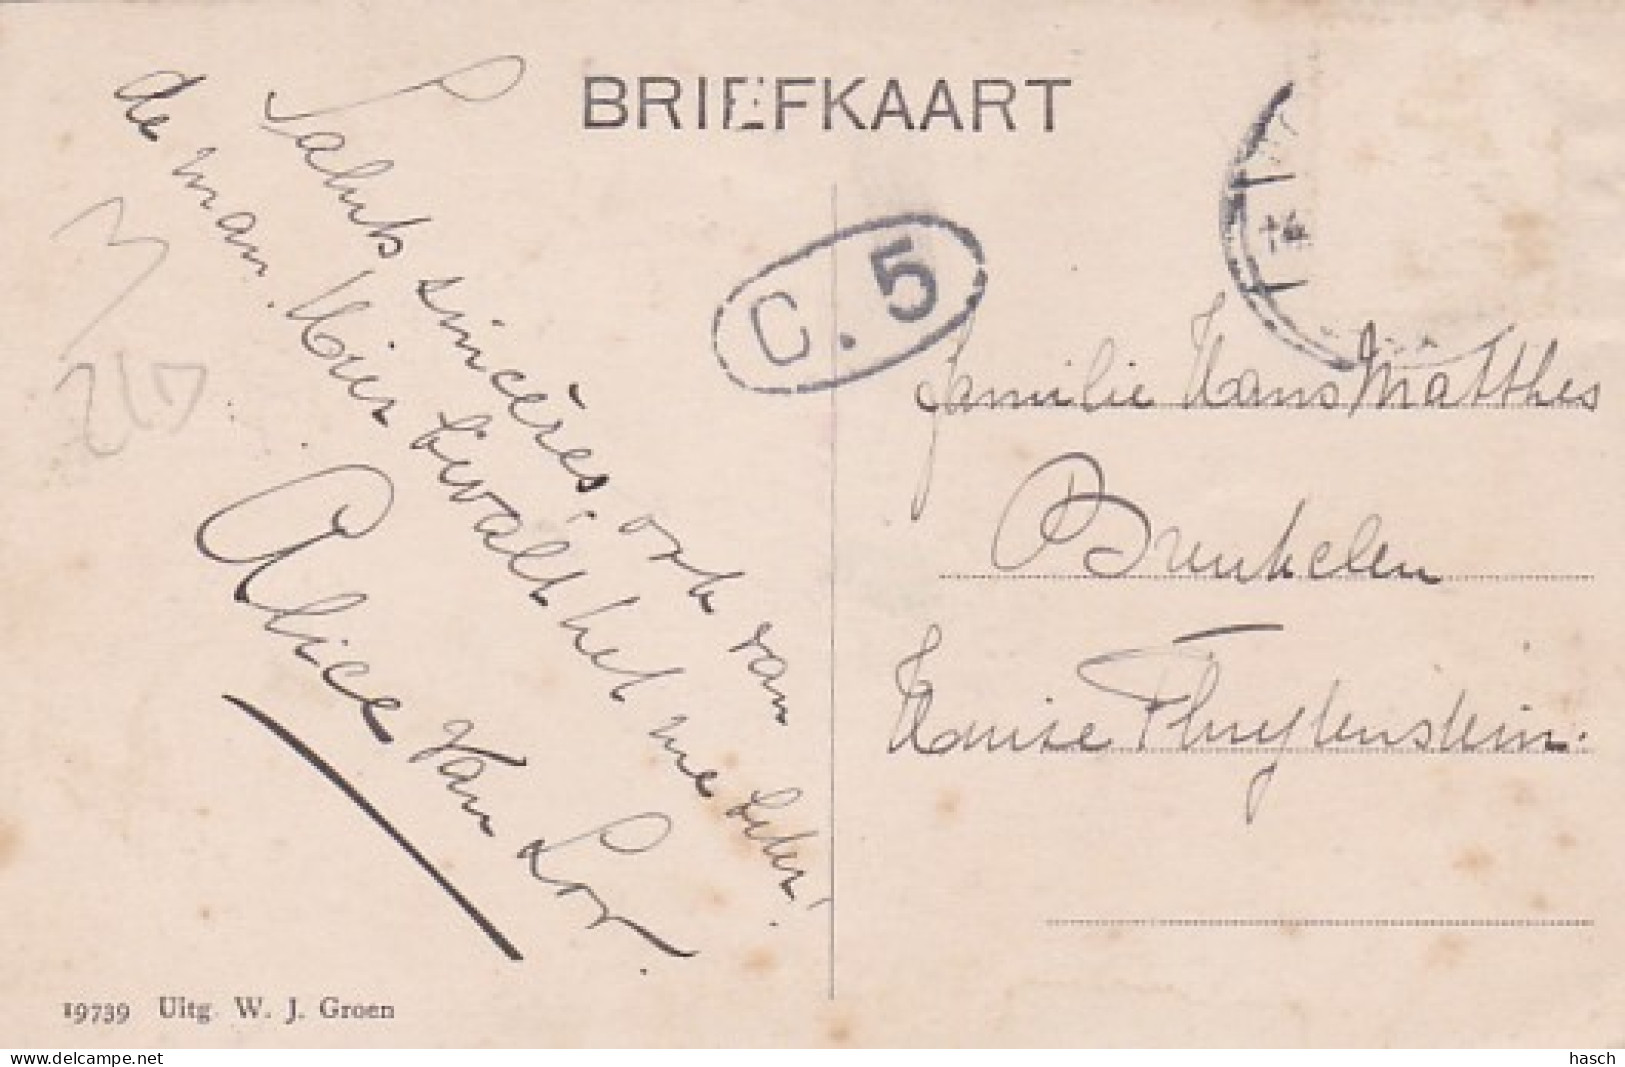 BRIEFKAART
C. 5
Saluts sincères, ook van
de man. Hier bevalt het me beter!
Alice van Lor.
Familie Hans Matthes
Breukelen
Huize Vluytenstein.
19739 Uitg. W. J. Groen
delcampe.net
hasch